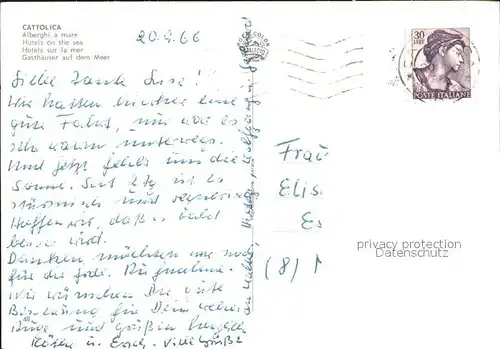 CATTOLICA
Alberghi a mare
Hotels on the sea
Hotels sur la mer
Gasthäuser auf dem Meer
20.9.66
Liebe Tante Lise!
Wir hatten bisher eine
gute Fahrt, nur war es
sehr warm unterwegs.
Und jetzt fehlt uns die
Sonne. Seit 2 Tg ist es
stürmisch und regnerisch
Hoffen wir, daß es bald
besser wird.
Danken möchten wir noch
für die gute Aufnahme.
Wir wünschen Dir gute
Besserung für Dein
und grüßen herzlich
Käthe u. Erich. Viele Grüße
Wolfgang
30
LIRE
POSTE ITALIANE
Frau
Elis
Es
(8)
privacy protection
Datenschutz